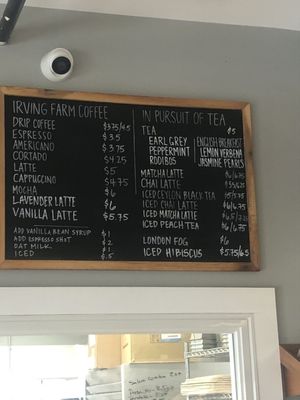 IRVING FARM COFFEE
DRIP COFFEE $3.75/4.5
ESPRESSO $3.5
AMERICANO $3.75
CORTADO $4.25
LATTE $5
CAPPUCCINO $4.75
MOCHA $6
LAVENDER LATTE $6
VANILLA LATTE $5.75
ADD VANILLA BEAN SYRUP $1
ADD ESPRESSO SHOT $2
OAT MILK $1
ICED $.5
IN PURSUIT OF TEA
TEA $5
EARL GREY
PEPPERMINT
ROOIBOS
ENGLISH BREAKFAST
LEMON VERBENA
JASMINE PEARLS
MATCHA LATTE $6/6.75
CHAI LATTE
ICED CEYLON BLACK TEA
ICED CHAI LATTE $6/6.75
ICED MATCHA LATTE
ICED PEACH TEA $6/6.75
LONDON FOG $6
ICED HIBISCUS $5.75/6.5